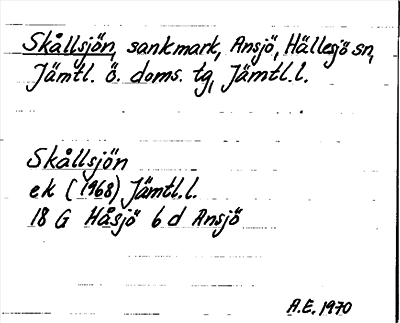 Skållsjön, sankmark, Ansjö, Hällesjö sn,
Jämtl. ö. doms. tg, Jämtl.l.
Skållsjön
ek (1968) Jämtl.l.
18 G Håsjö 6 d Ansjö
A.E. 1970